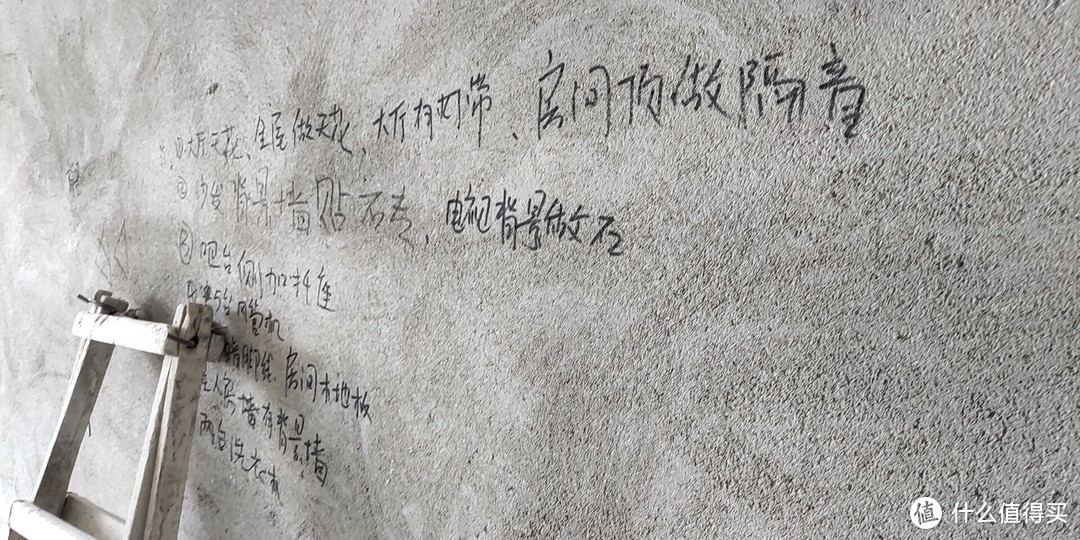 ①大厅天花、全屋做天花、大厅有灯带、房间顶做隔音
②沙发背景墙贴石去,电视背景做石
③吧台侧加
5台风管机
暗脚线、房间木地板
主人房墙有背景墙
两台洗衣
值 什么值得买